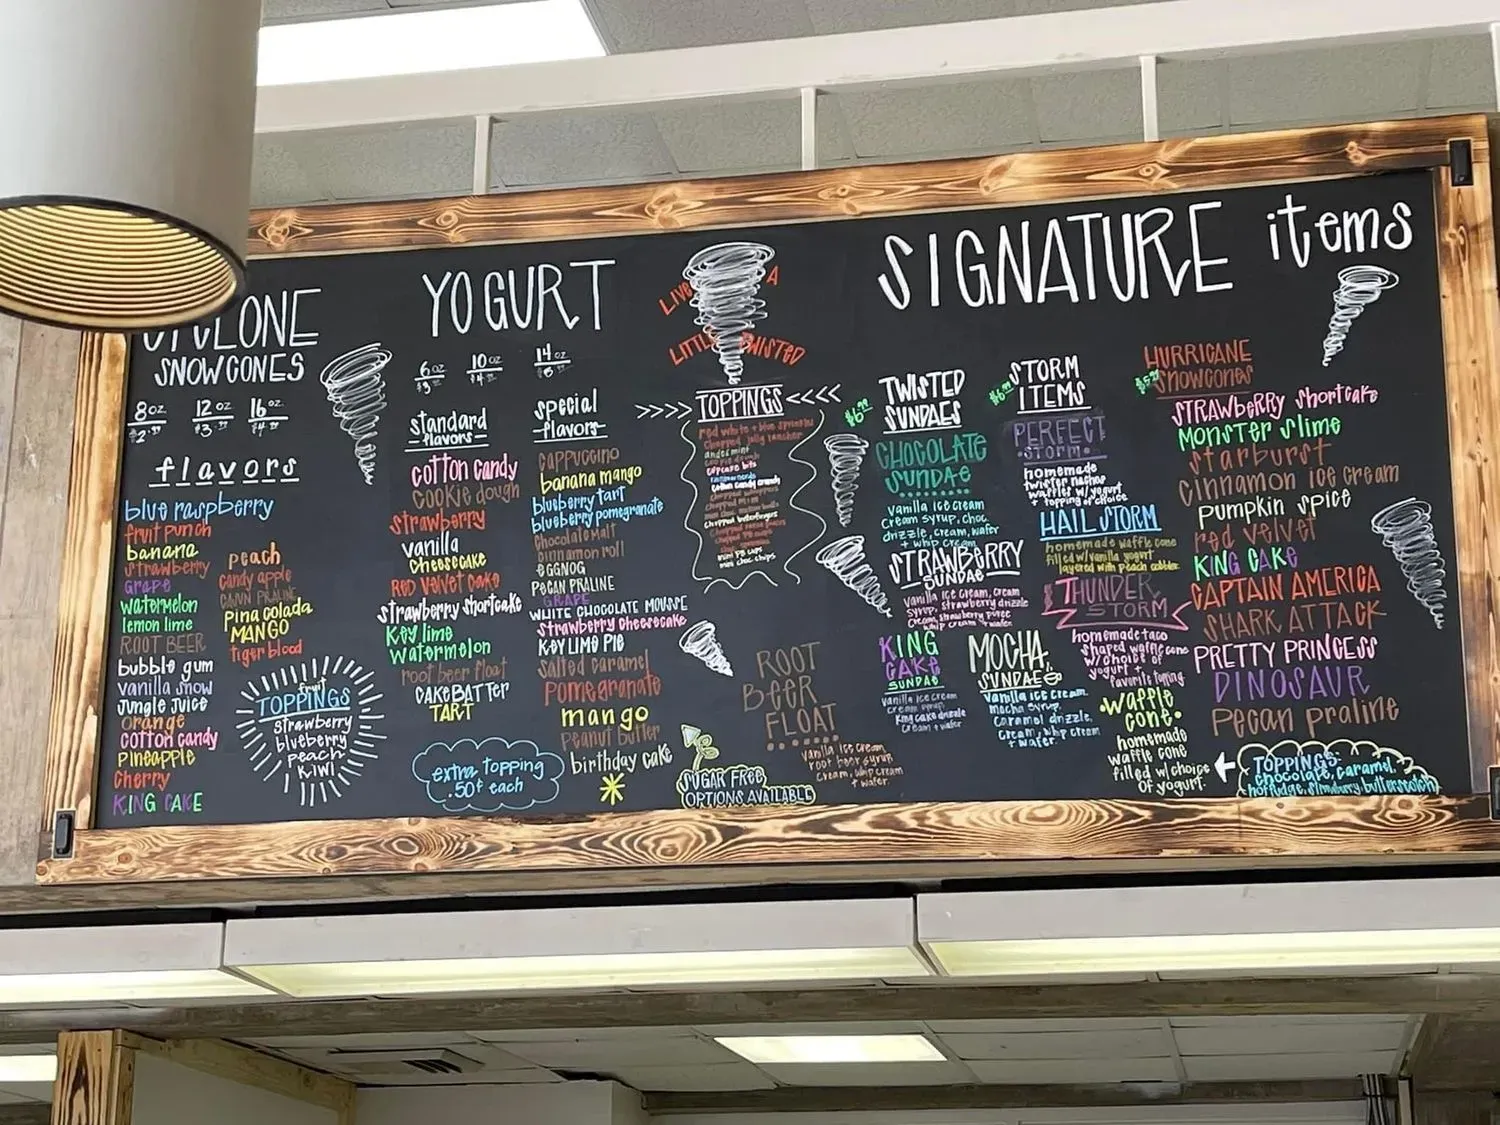 CYCLONE
SNOWCONES
8oz 12oz 16oz
flavors
blue raspberry
fruit punch
banana
strawberry
GRAPE
watermelon
lemon lime
ROOT BEER
bubble gum
vanilla snow
Jungle Juice
orange
cotton candy
pineapple
Cherry
KING CAKE
peach
candy apple
CAJUN PRALINE
pina colada
MANGO
tiger blood
fruit
TOPPINGS
strawberry
blueberry
peach
kiwi
YOGURT
6oz 10oz 14oz
standard
flavors
cotton candy
cookie dough
strawberry
vanilla
cheesecake
RED VELVET CAKE
strawberry shortcake
Key lime
watermelon
root beer float
CAKE BATTER
TART
extra topping
.50¢ each
special
flavors
cappuccino
banana mango
blueberry tart
blueberry pomegranate
chocolate malt
cinnamon roll
EGGNOG
PECAN PRALINE
GRAPE
WHITE CHOCOLATE MOUSSE
strawberry cheesecake
KEY LIME PIE
salted caramel
pomegranate
mango
peanut butter
birthday cake
LIVE A
LITTLE TWISTED
>>>> TOPPINGS <<<<
red white + blue sprinkles
chopped jolly rancher
andes mint
cookie dough
cupcake bits
cotton candy crunch
chopped whoppers
chopped butterfingers
mini PB cups
mini choc chips
SUGAR FREE
OPTIONS AVAILABLE
ROOT
BEER
FLOAT
vanilla ice cream,
root beer syrup,
cream, whip cream
+ wafer.
SIGNATURE items
TWISTED
SUNDAES
CHOCOLATE
SUNDAE
vanilla ice cream
cream syrup, choc.
drizzle, cream, wafer
+ whip cream
STRAWBERRY
SUNDAE
vanilla ice cream, cream
syrup, strawberry drizzle
cream, strawberry puree
whip cream + wafer.
KING
CAKE
SUNDAE
vanilla ice cream
cream syrup,
king cake drizzle
cream + wafer
MOCHA
SUNDAE
vanilla ice cream.
mocha syrup.
caramel drizzle.
cream, whip cream
+ wafer.
STORM
ITEMS
PERFECT
STORM
homemade
twister nachos
waffles w/ yogurt
+ topping of choice
HAIL STORM
homemade waffle cone
filled w/ vanilla yogurt
layered with peach cobbler.
THUNDER
STORM
homemade taco
shaped waffle cone
w/ choice of
yogurt +
favorite topping.
WAFFLE
CONE
homemade
waffle cone
filled w/ choice
of yogurt.
HURRICANE
SNOWCONES
STRAWBERRY shortcake
MONSTER slime
starburst
cinnamon ice cream
PUMPKIN SPICE
red velvet
KING CAKE
CAPTAIN AMERICA
SHARK ATTACK
PRETTY PRINCESS
DINOSAUR
Pecan praline
TOPPINGS:
chocolate, caramel,
hot fudge, strawberry, butterscotch